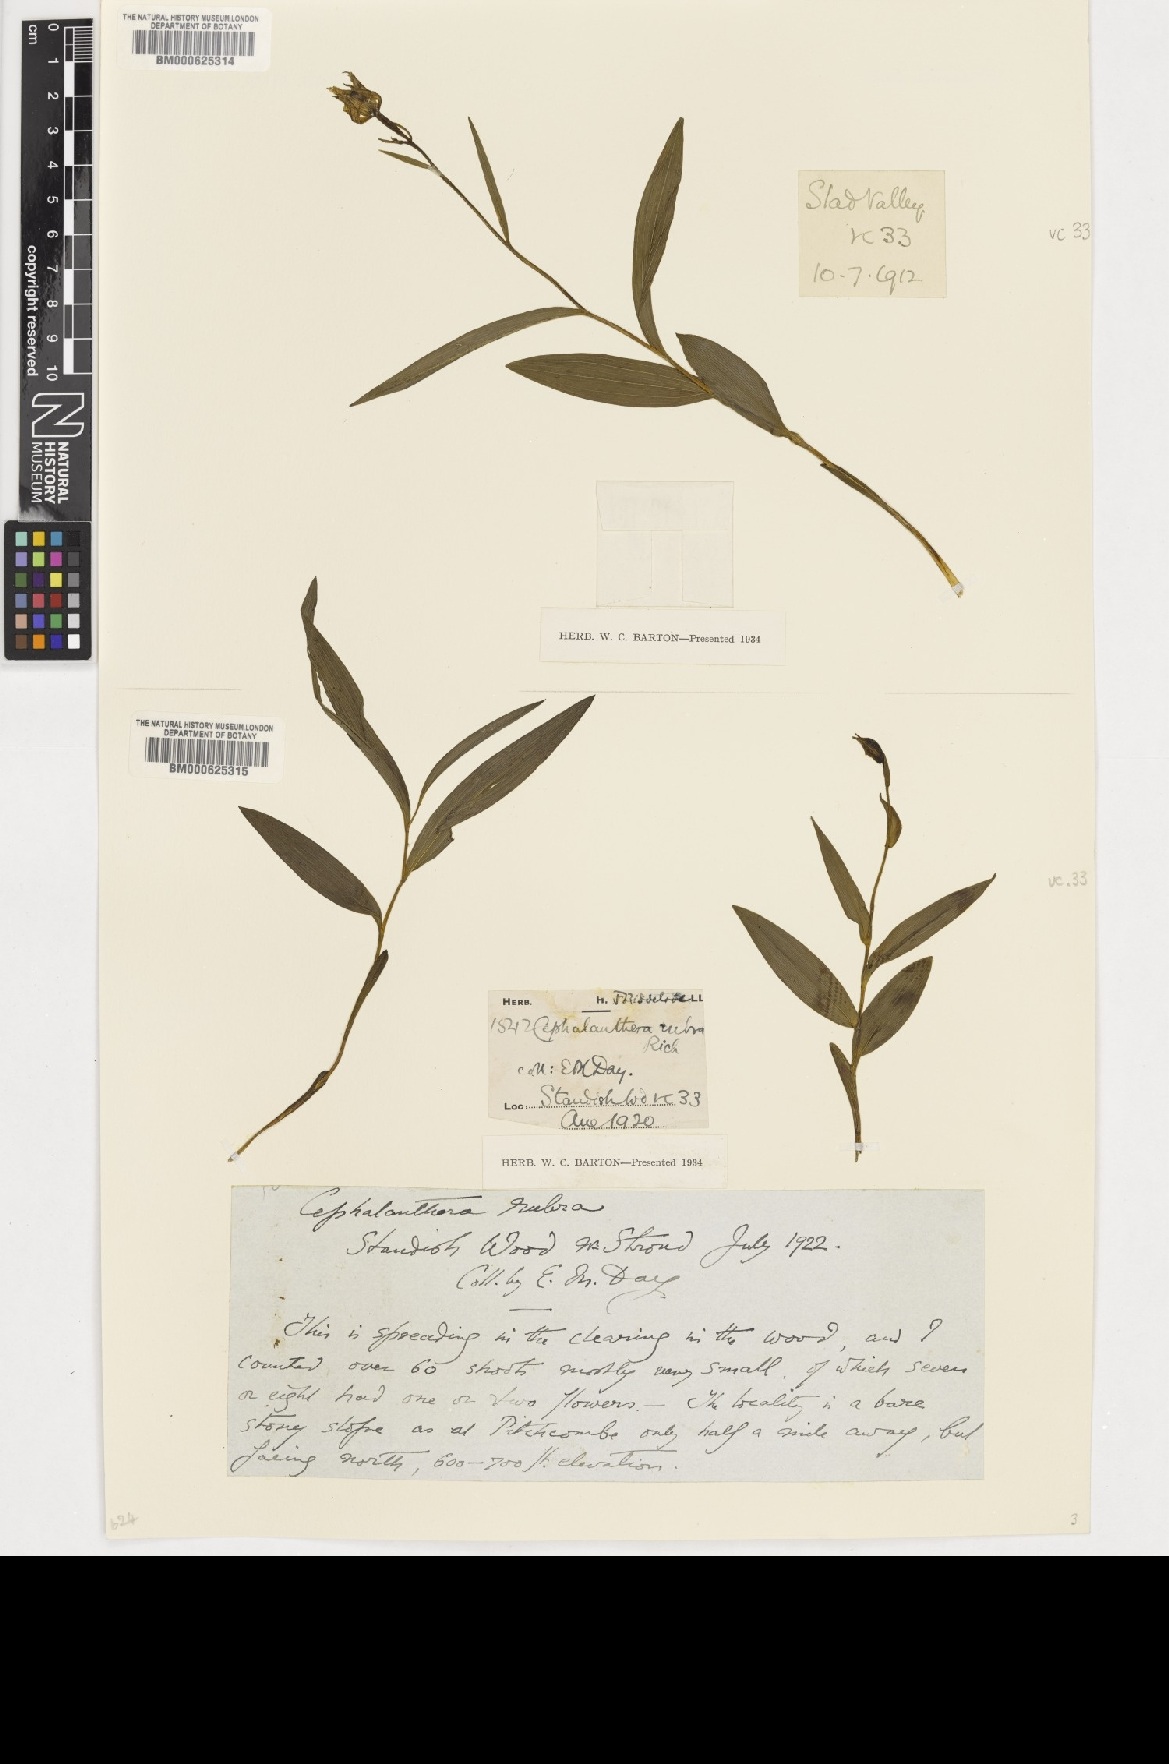 THE NATURAL HISTORY MUSEUM, LONDON
DEPARTMENT OF BOTANY
BM000625314
cm
0
1
2
3
4
5
6
7
8
9
10
copyright reserved
NATURAL
HISTORY
MUSEUM
Slad Valley
vc 33
10.7.1912
vc 33
HERB. W. C. BARTON—Presented 1934
THE NATURAL HISTORY MUSEUM, LONDON
DEPARTMENT OF BOTANY
BM000625315
vc.33
HERB. H.
1842 Cephalanthera rubra
Rich
coll: E M Day.
Loc. Standish Wd vc 33
Aug 1920
HERB. W. C. BARTON—Presented 1934
Cephalanthera rubra
Standish Wood nr. Stroud July 1922.
Coll. by E. M. Day
This is spreading in the clearing in the wood, and I
counted over 60 shoots mostly very small, of which seven
or eight had one or two flowers. — The locality is a bare
stony slope as at Pitchcombe only half a mile away, but
facing north, 600–700 ft. elevation.
624
3